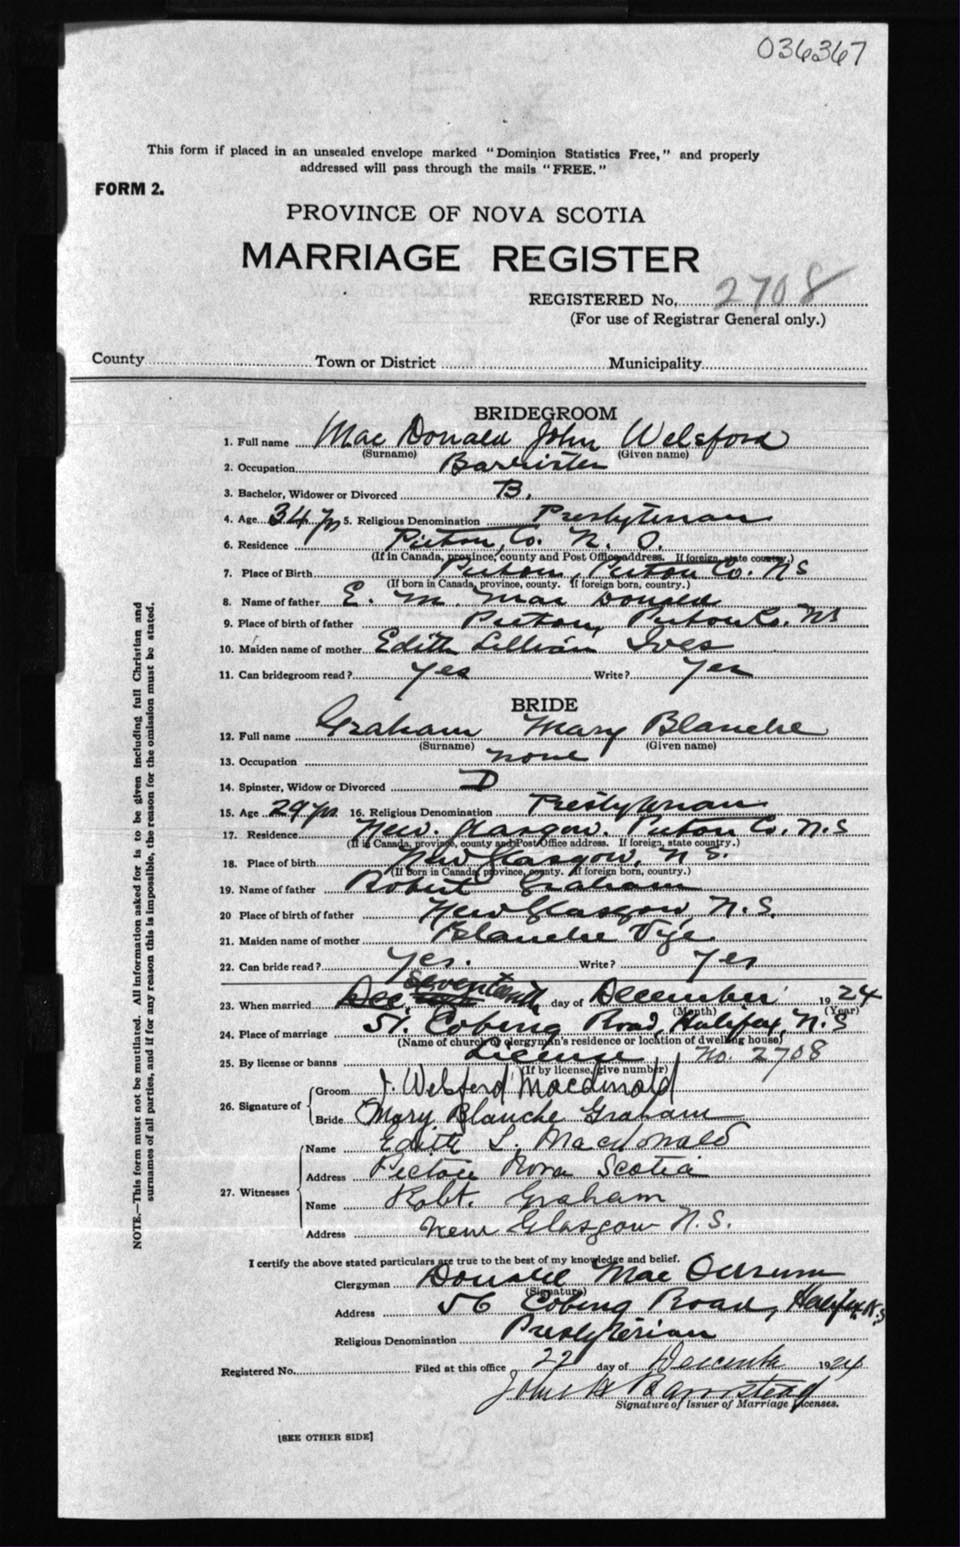 036367
This form if placed in an unsealed envelope marked "Dominion Statistics Free," and properly
addressed will pass through the mails "FREE."
FORM 2.
PROVINCE OF NOVA SCOTIA
MARRIAGE REGISTER
REGISTERED No. 2708
(For use of Registrar General only.)
County Town or District Municipality
BRIDEGROOM
1. Full name Mac Donald John Welsford
(Surname) (Given name)
2. Occupation Barrister
3. Bachelor, Widower or Divorced B.
4. Age 34 yrs 5. Religious Denomination Presbyterian
6. Residence Pictou, Co. N. S.
(If in Canada, province, county and Post Office address. If foreign, state country.)
7. Place of Birth Pictou, Pictou Co. N S
(If born in Canada, province, county. If foreign born, country.)
8. Name of father E. M. Mac Donald
9. Place of birth of father Pictou, Pictou Co. NS
10. Maiden name of mother Edith Lillian Ives
11. Can bridegroom read? Yes Write? Yes
BRIDE
12. Full name Graham Mary Blanche
(Surname) (Given name)
13. Occupation none
14. Spinster, Widow or Divorced D
15. Age 29 yrs 16. Religious Denomination Presbyterian
17. Residence New. Glasgow. Pictou Co. N.S
(If in Canada, province, county and Post Office address. If foreign, state country.)
18. Place of birth New Glasgow, N. S.
(If born in Canada, province, county. If foreign born, country.)
19. Name of father Robert Graham
20 Place of birth of father New Glasgow N.S.
21. Maiden name of mother Blanche Vye
22. Can bride read? Yes. Write? Yes
23. When married Dec. Seventeenth day of December 1924
(Month) (Year)
24. Place of marriage 57. Coburg Road, Halifax, N.S
(Name of church or clergyman's residence or location of dwelling house)
25. By license or banns License No. 2708
(If by license, give number)
26. Signature of Groom J. Welsford Macdonald
Bride Mary Blanche Graham
27. Witnesses Name Edith L. Macdonald
Address Pictou Nova Scotia
Name Robt. Graham
Address New Glasgow N.S.
I certify the above stated particulars are true to the best of my knowledge and belief.
Clergyman Donald Mac
(Signature)
Address 56 Coburg Road, Halifax N.S
Religious Denomination Presbyterian
Registered No. Filed at this office 22 day of December 1924
John
Signature of Issuer of Marriage Licenses.
[SEE OTHER SIDE]
NOTE.—This form must not be mutilated. All information asked for is to be given including full Christian and
surnames of all parties, and if for any reason this is impossible, the reason for the omission must be stated.